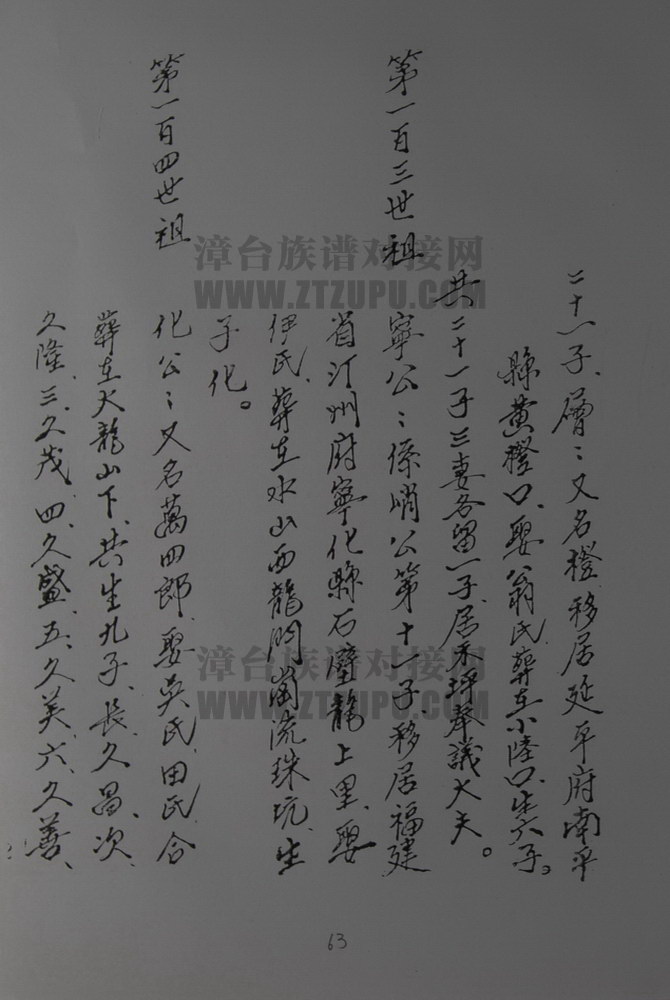 二十一子、層〻又名橙移居延平府南平
縣黄橙口、娶翁氏葬在小陸口、生六子。
共二十一子三妻各留一子居禾坪奉議大夫。
第一百三世祖
寧公〻係峭公第十一子移居福建
省汀州府寧化縣石壁龍上里、娶
伊氏、葬在水山西龍門崗流珠坑、生
子化。
第一百四世祖
化公〻又名萬四郎、娶吳氏、田氏、合
葬在大龍山下、共生九子、長、久昌、次、
久隆、三、久茂、四、久盛、五、久美、六、久善、
63
漳台族谱对接网
WWW.ZTZUPU.COM
漳台族谱对接网
WWW.ZTZUPU.COM